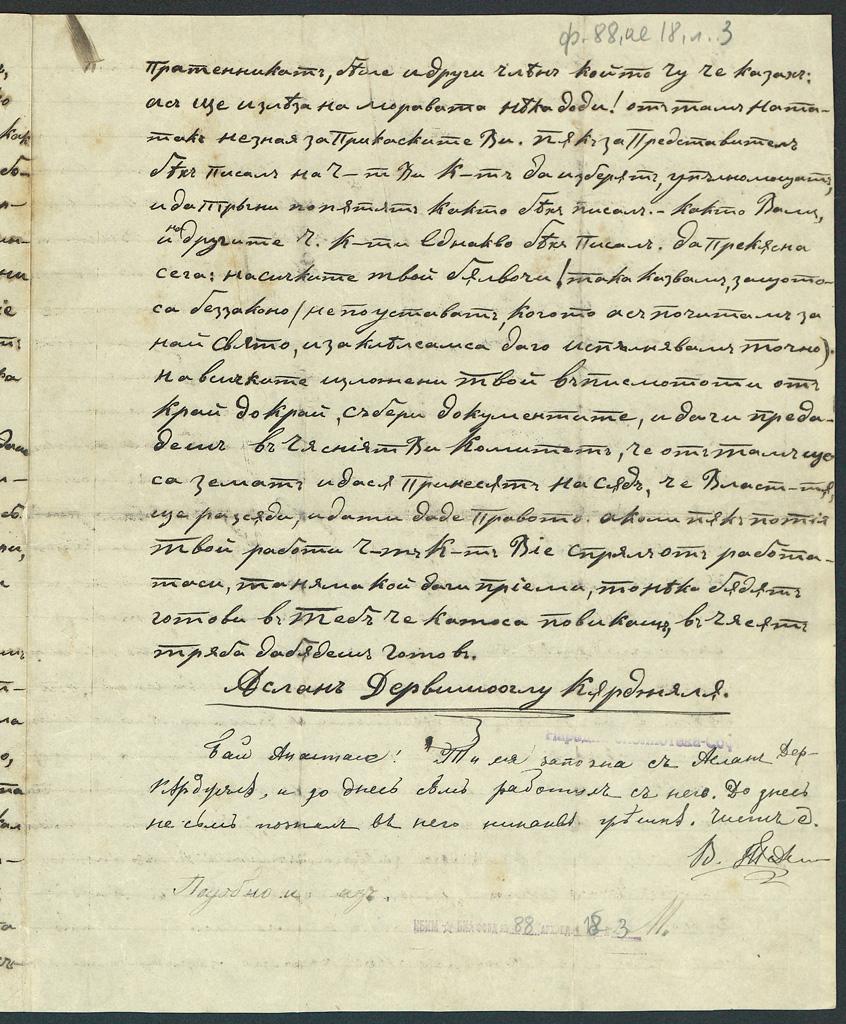 ф. 88, ае 18, л. 3
пратенникатъ, бѣле и други члѣнъ който чу че казахъ:
асъ ще излѣза на моравата нѣка доди! отъ тамъ ната-
такъ незная за Прикаските Ви. пякъ за Представителъ
бѣхъ писалъ на Ч-тт Ви К-тъ да изберятъ, упълномощатъ,
и да тръгни попятятъ както бѣхъ писалъ. - както Вамъ,
и на другите Ч. К-ти Еднакво бѣхъ писалъ. да прекясна
сега: насичките твой бялвочи! така казвамъ, защото
са беззаконо (непоуставатъ, когото асъ почитамъ за
най Свято, и заклѣлсамса даго испълнявамъ точно).
На всичките изложени твой въ писмото ти отъ
край до край, събери документите, и дачи преда-
дешъ въ Чясніят Ви Комитетъ, че отъ тамъ ще
са зематъ и дася Принесятъ на Сядъ, че Власт-тя,
ще разсяди, и дати даде правото. ако ли пякъ по тія
твой работи Ч-тъ К-тъ Віе спрялъ отъ работа-
таси, та няма кой дачи пріеми, то нѣка бядятъ
готови въ тебъ че катоса повикашъ, въ Чясятъ
тряба дабядешъ готовъ.
Асланъ Дервишоглу Кярджаля.
Бай Анастасе! Ти мя запозна съ Асланъ Дер-
Кярджалѣ, и до днесь съмь работилъ съ него. До днесь
не съмь позналъ въ него никаквѣ грѣшкѣ. Чистъ е.
В.
Подобно и азъ.
НБКМ БИА ФОНД № 88 АРХ. ЕД. 18 3